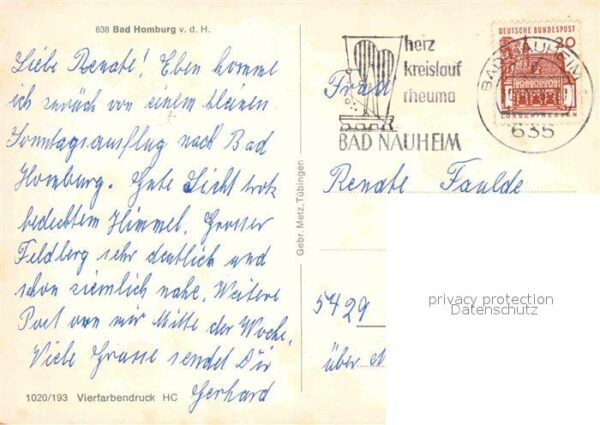 638 Bad Homburg v. d. H.
Liebe Renate! Eben komme
ich zurück von einem kleinen
Sonntagsausflug nach Bad
Homburg. Gute Sicht trotz
bedecktem Himmel. Grosser
Feldberg sehr deutlich und
schon ziemlich nahe. Weitere
Post von mir Mitte der Woche.
Viele Grüsse sendet Dir
Gerhard
1020/193 Vierfarbendruck HC
Gebr. Metz, Tübingen
herz
kreislauf
rheuma
BAD NAUHEIM
DEUTSCHE BUNDESPOST
20
BAD NAUHEIM
635
Frau
Renate Faulde
5429
über
privacy protection
Datenschutz